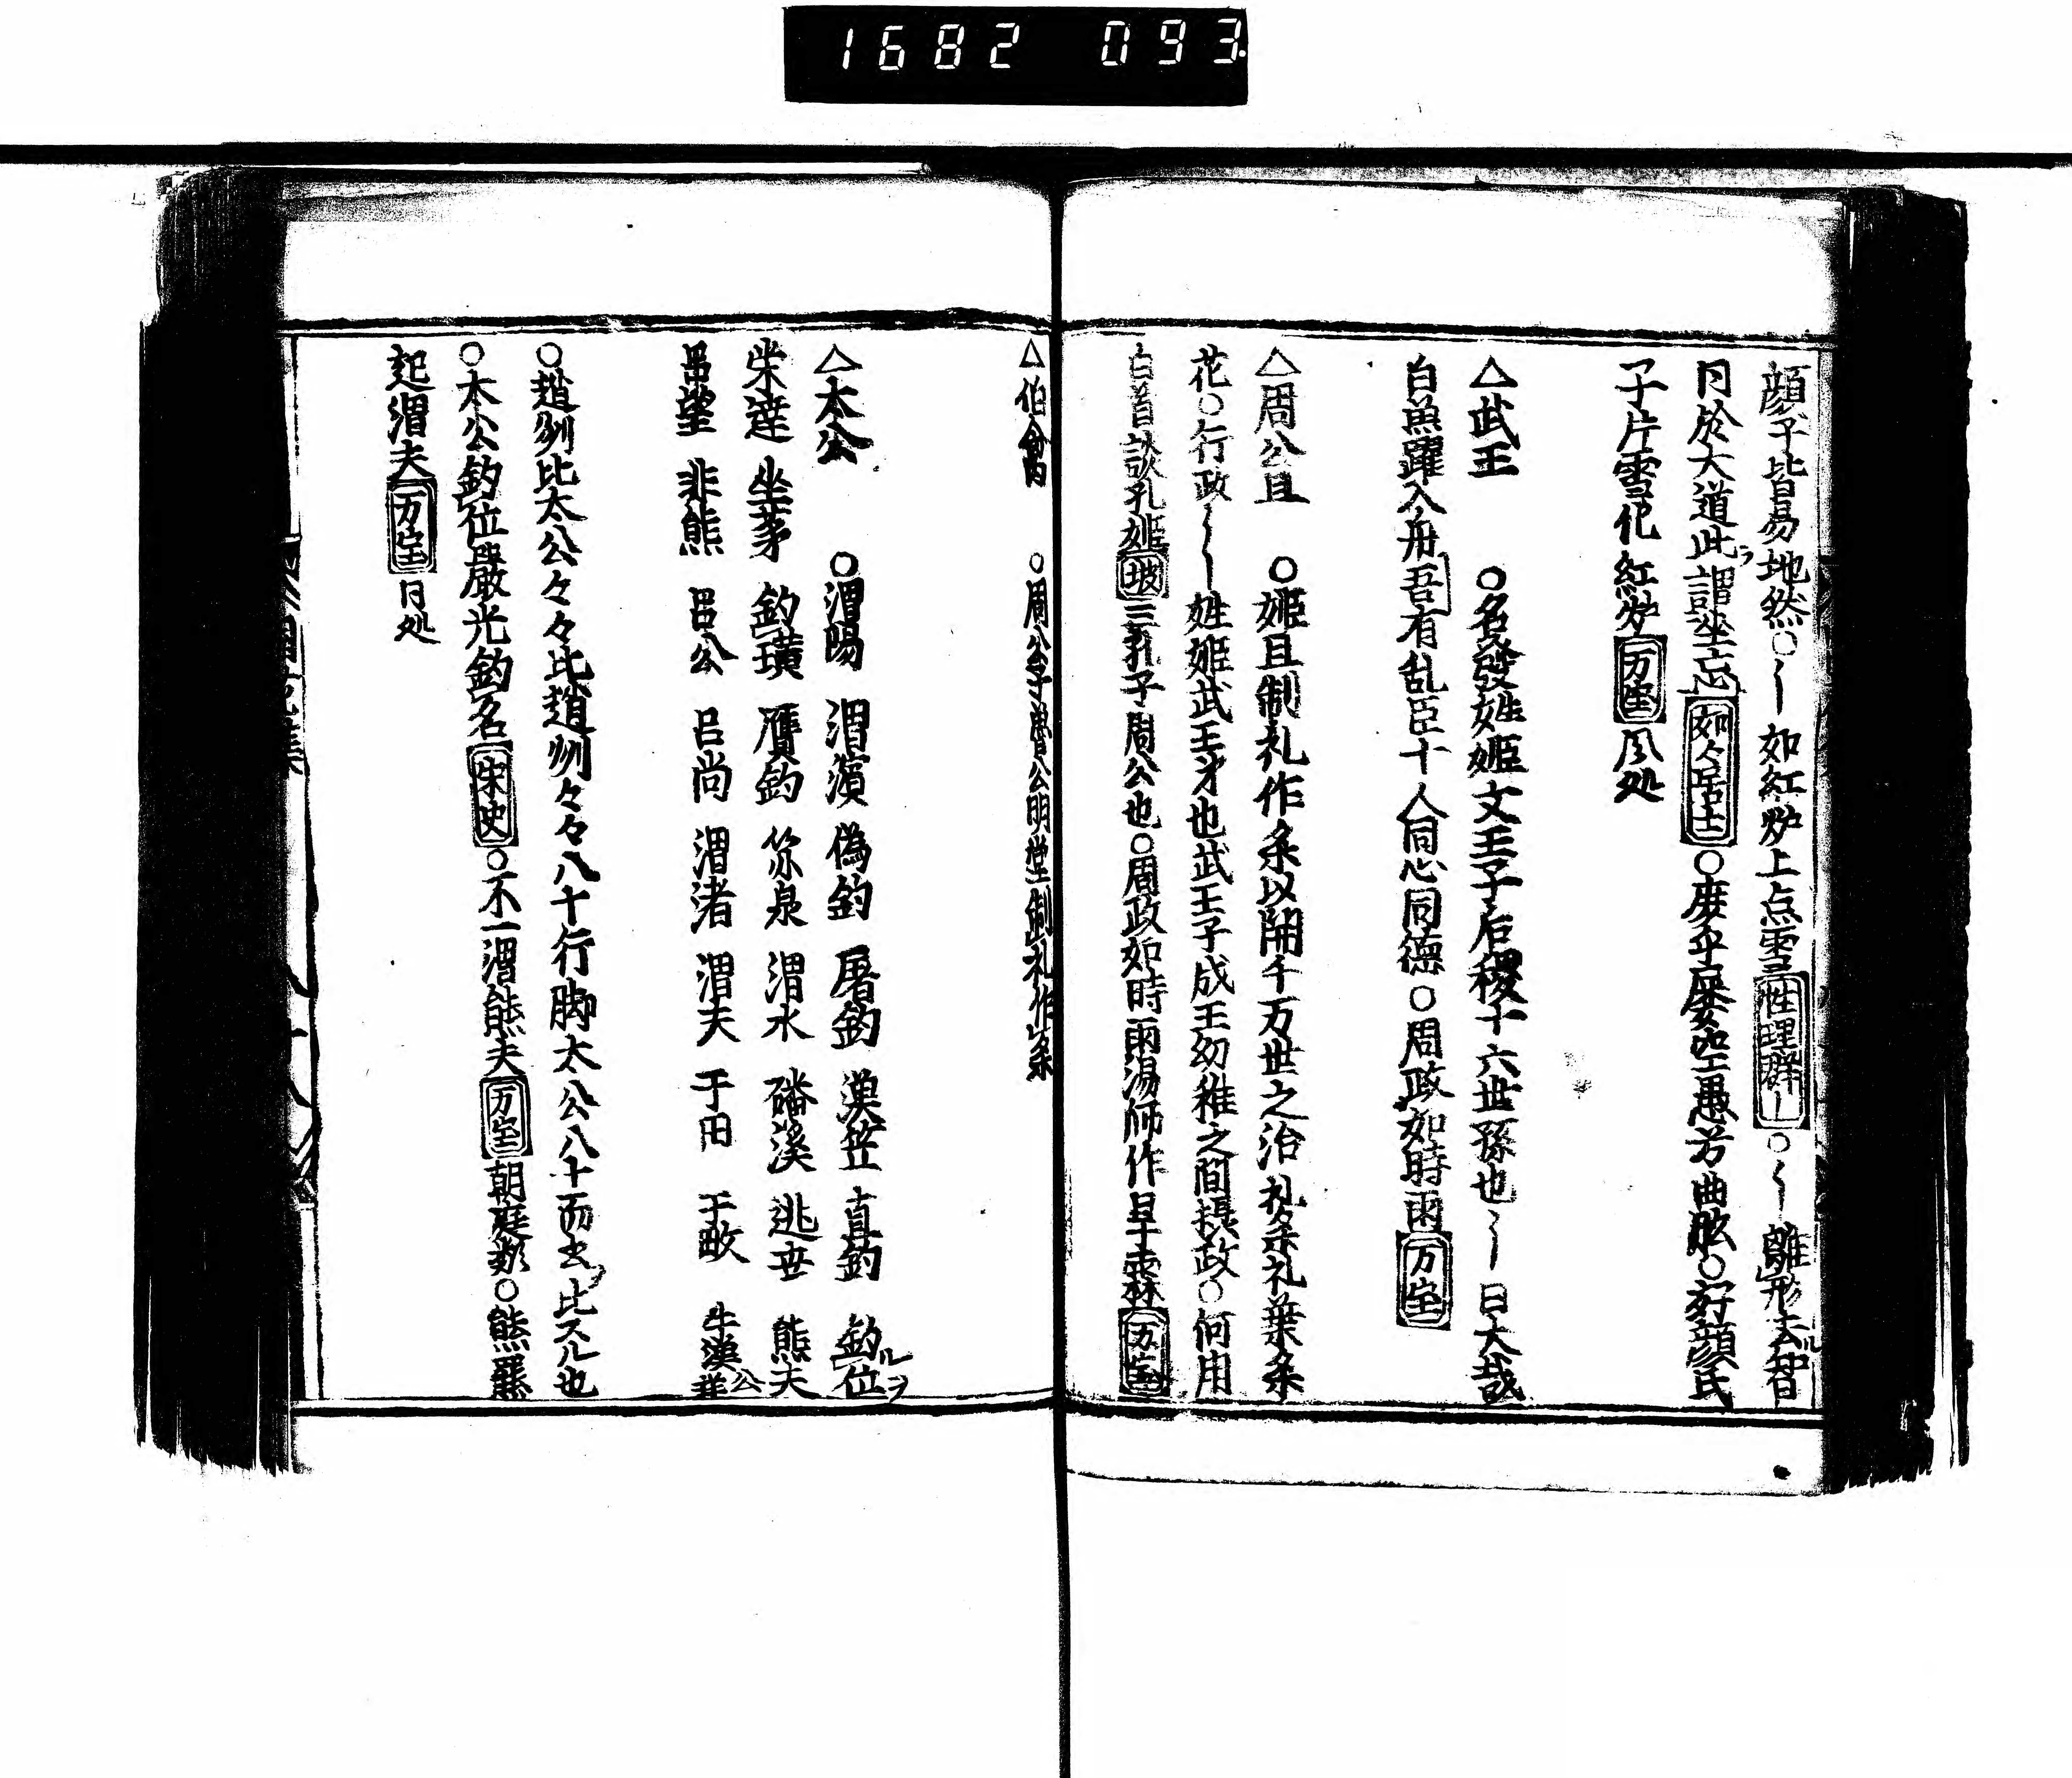 1682 093
顔子皆易地然○〱如紅炉上点雪性理群〡○〱離形去ル智
同於大道此ヲ謂坐忘如々居士○庶乎屡空愚考曲肱○好顔氏
子片雪化紅炉万宝风処
△武王 ○名發姓姬文王子后稷十六世孫也〱曰大哉
白魚躍入舟吾有乱臣十人同心同德○周政如時雨万宝
△周公旦 ○姬旦制礼作楽以開千万世之治礼楽礼葉楽
花○行政〱姓姬武王才也武王子成王幼稚之間摂政○何用
白首談孔姬坡三孔子周公也○周政如時雨湯師作旱霖万宝
△伯禽 ○周公子魯公明堂制礼作楽
△太公 ○渭陽 渭濱 偽釣 屠釣 漢 直釣 釣ル位ヲ
柴達 坐茅 釣璜 鷹釣 泉 渭水 磻溪 逃世 熊夫
呂望 非熊 呂公 呂尚 渭渚 渭夫 于田 于畋
○趙州比太公々々比趙州々々八十行脚太公八十而出比スル也
○太公釣位嚴光釣名宋史○不一渭熊夫万宝朝庭○熊羆
起渭夫万宝同処